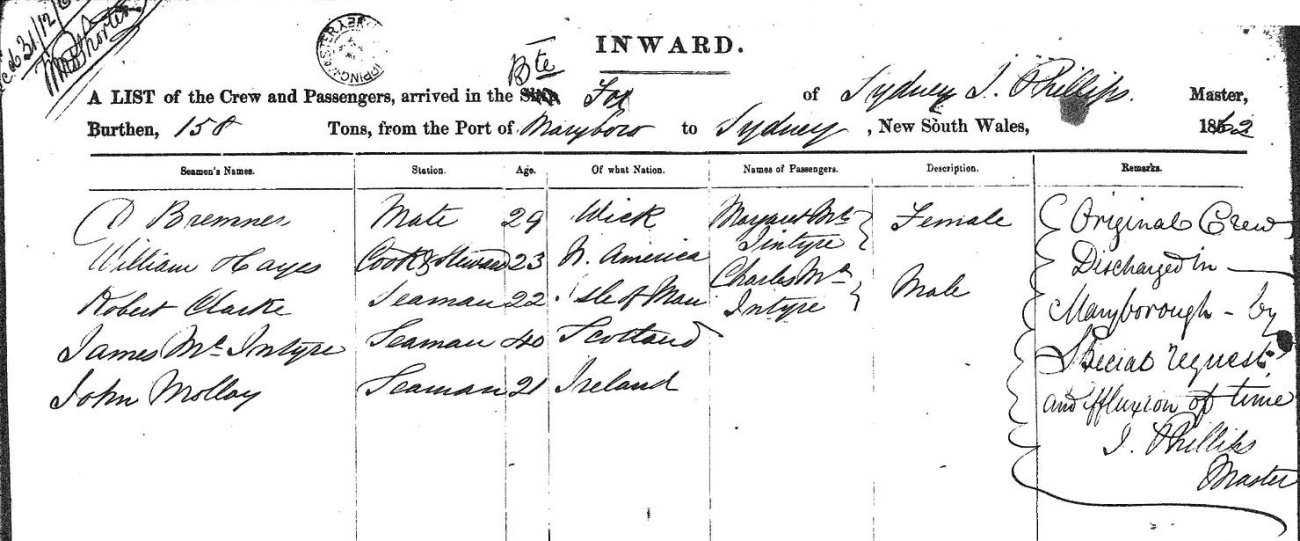 31/12/
INWARD.
Bte
A LIST of the Crew and Passengers, arrived in the Ship Fox of Sydney I. Phillips. Master,
Burthen, 158 Tons, from the Port of Maryboro to Sydney, New South Wales, 1862
Seamen's Names. Station. Age. Of what Nation. Names of Passengers. Description. Remarks.
D Bremner Mate 29 Wick Margaret Mc Intyre Female Original Crew
William Hayes Cook & Steward 23 N. America Charles Mc Intyre Male Discharged in
Robert Clarke Seaman 22 Isle of Man Maryborough - by
James Mc Intyre Seaman 40 Scotland Special request
John Molloy Seaman 21 Ireland and effluxion of time
I. Phillips
Master